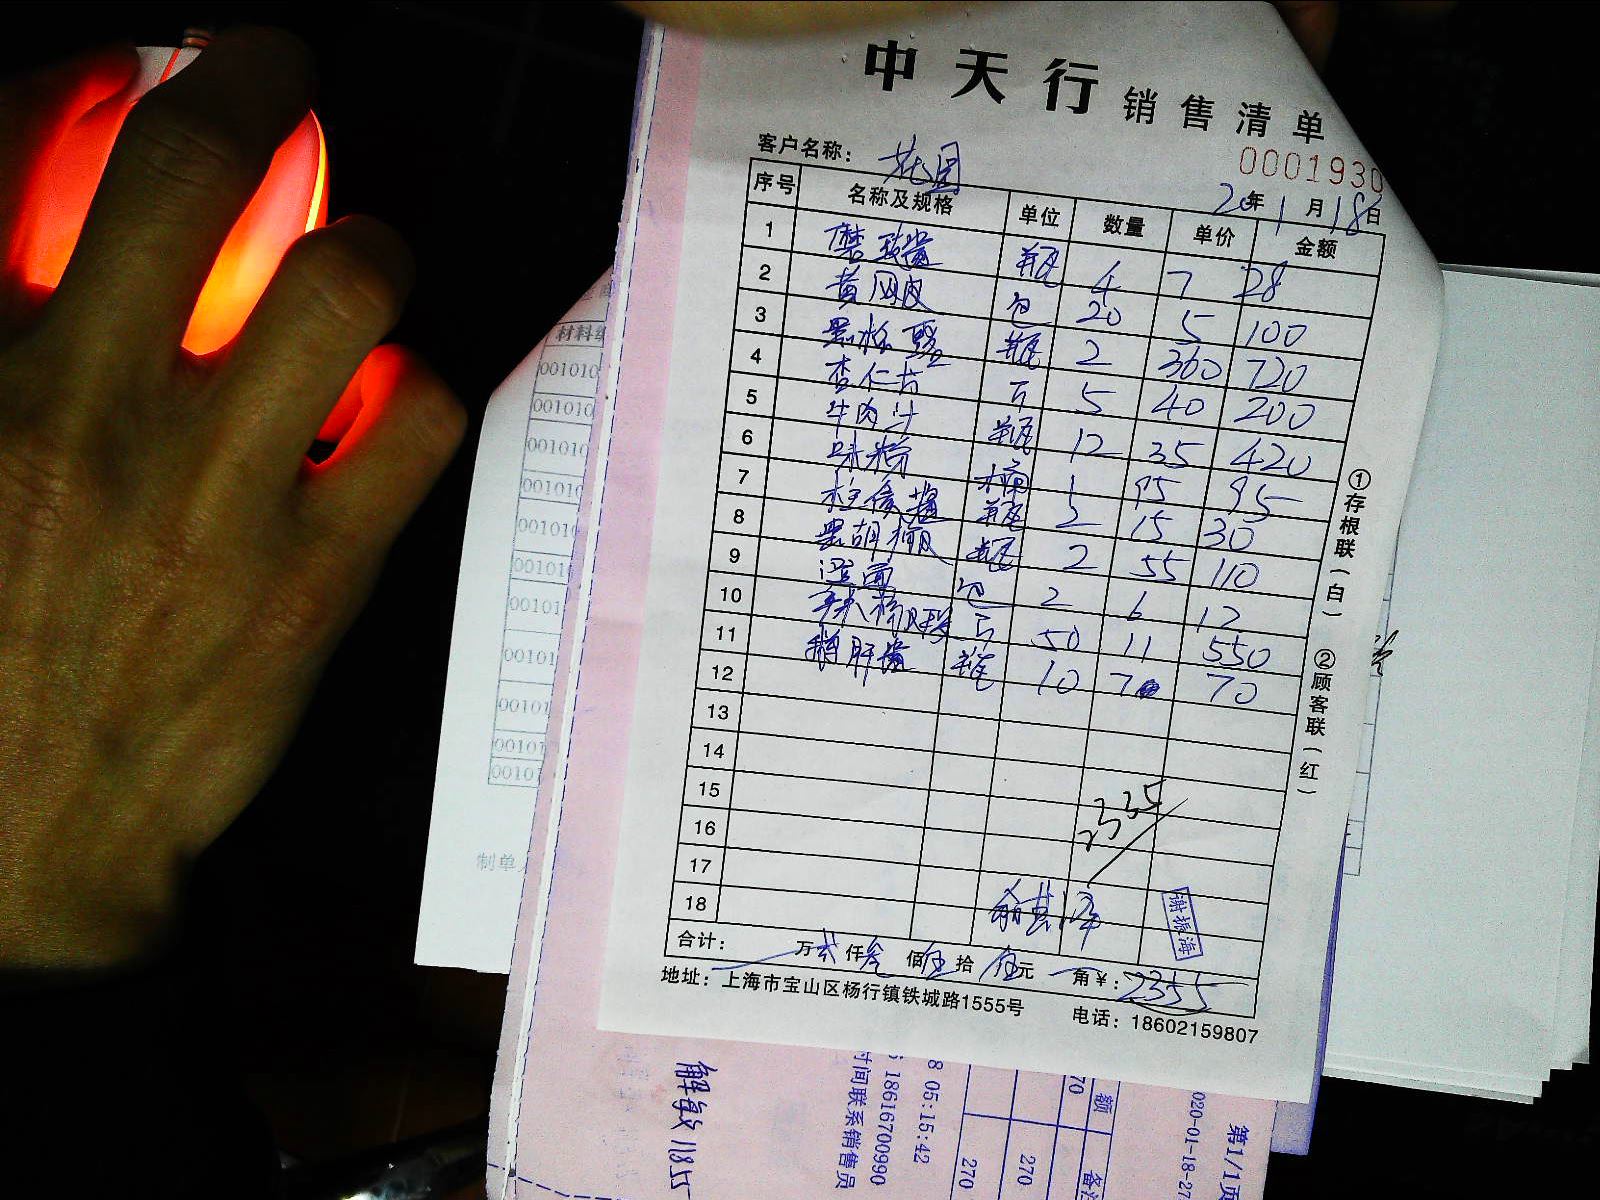 中天行 销售清单
0001930
客户名称： 花园
20年1月18日
序号 名称及规格 单位 数量 单价 金额
1 瓶 4 7 28
2 黄网皮 包 20 5 100
3 瓶 2 360 720
4 杏仁片 5 40 200
5 牛肉汁 瓶 12 35 420
6 味粉 桶 1 95 95
7 柱侯酱 瓶 2 15 30
8 黑胡椒 瓶 2 55 110
9 面 包 2 6 12
10 50 11 550
11 鹅肝酱 瓶 10 7 70
12
13
14
15
16
17
18
2335
谢振海
合计： 万贰仟叁佰伍拾伍元 角￥：2355
地址：上海市宝山区杨行镇铁城路1555号
电话：18602159807
①存根联（白） ②顾客联（红）
材料编
001010
001010
001010
00101
00101
00101
00101
00101
00101
00101
00101
制单人
解敏 1185
时间联系销售员
18616700990
8 05:15:42
270
270
70
额
备注
020-01-18-27
第1/1页